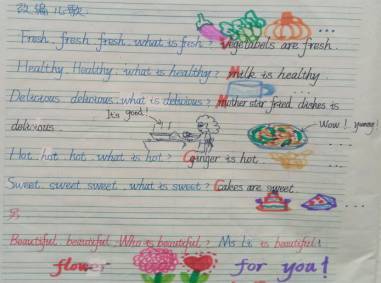 改编儿歌
Fresh, fresh, fresh, what is fresh? Vegetabels are fresh.
Healthy, Healthy, what is healthy? Milk is healthy.
Delicious delicious, what is delicious? Mother stir fried dishes is
delicious.
It's good!
Wow! yummy!
Hot, hot, hot, what is hot? Ginger is hot.
Sweet, sweet, sweet, what is sweet? Cakes are sweet.
Beautiful, beautiful, Who is beautiful? Ms Li is beautiful!
flower for you!